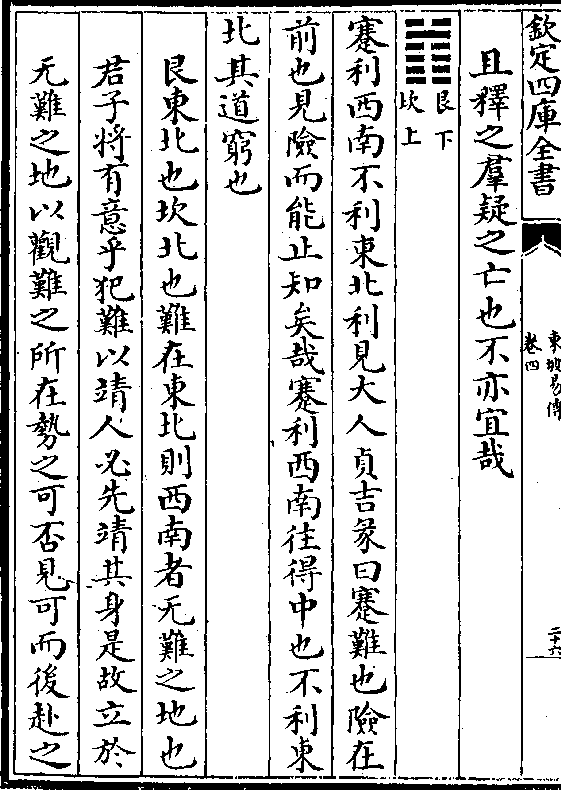 欽定四庫全書
東坡易傳
卷四
二十六
且釋之羣疑之亡也不亦宜哉
艮下
坎上
蹇利西南不利東北利見大人貞吉彖曰蹇難也險在
前也見險而能止知矣哉蹇利西南往得中也不利東
北其道窮也
艮東北也坎北也難在東北則西南者无難之地也
君子將有意乎犯難以靖人必先靖其身是故立於
无難之地以觀難之所在勢之可否見可而後赴之